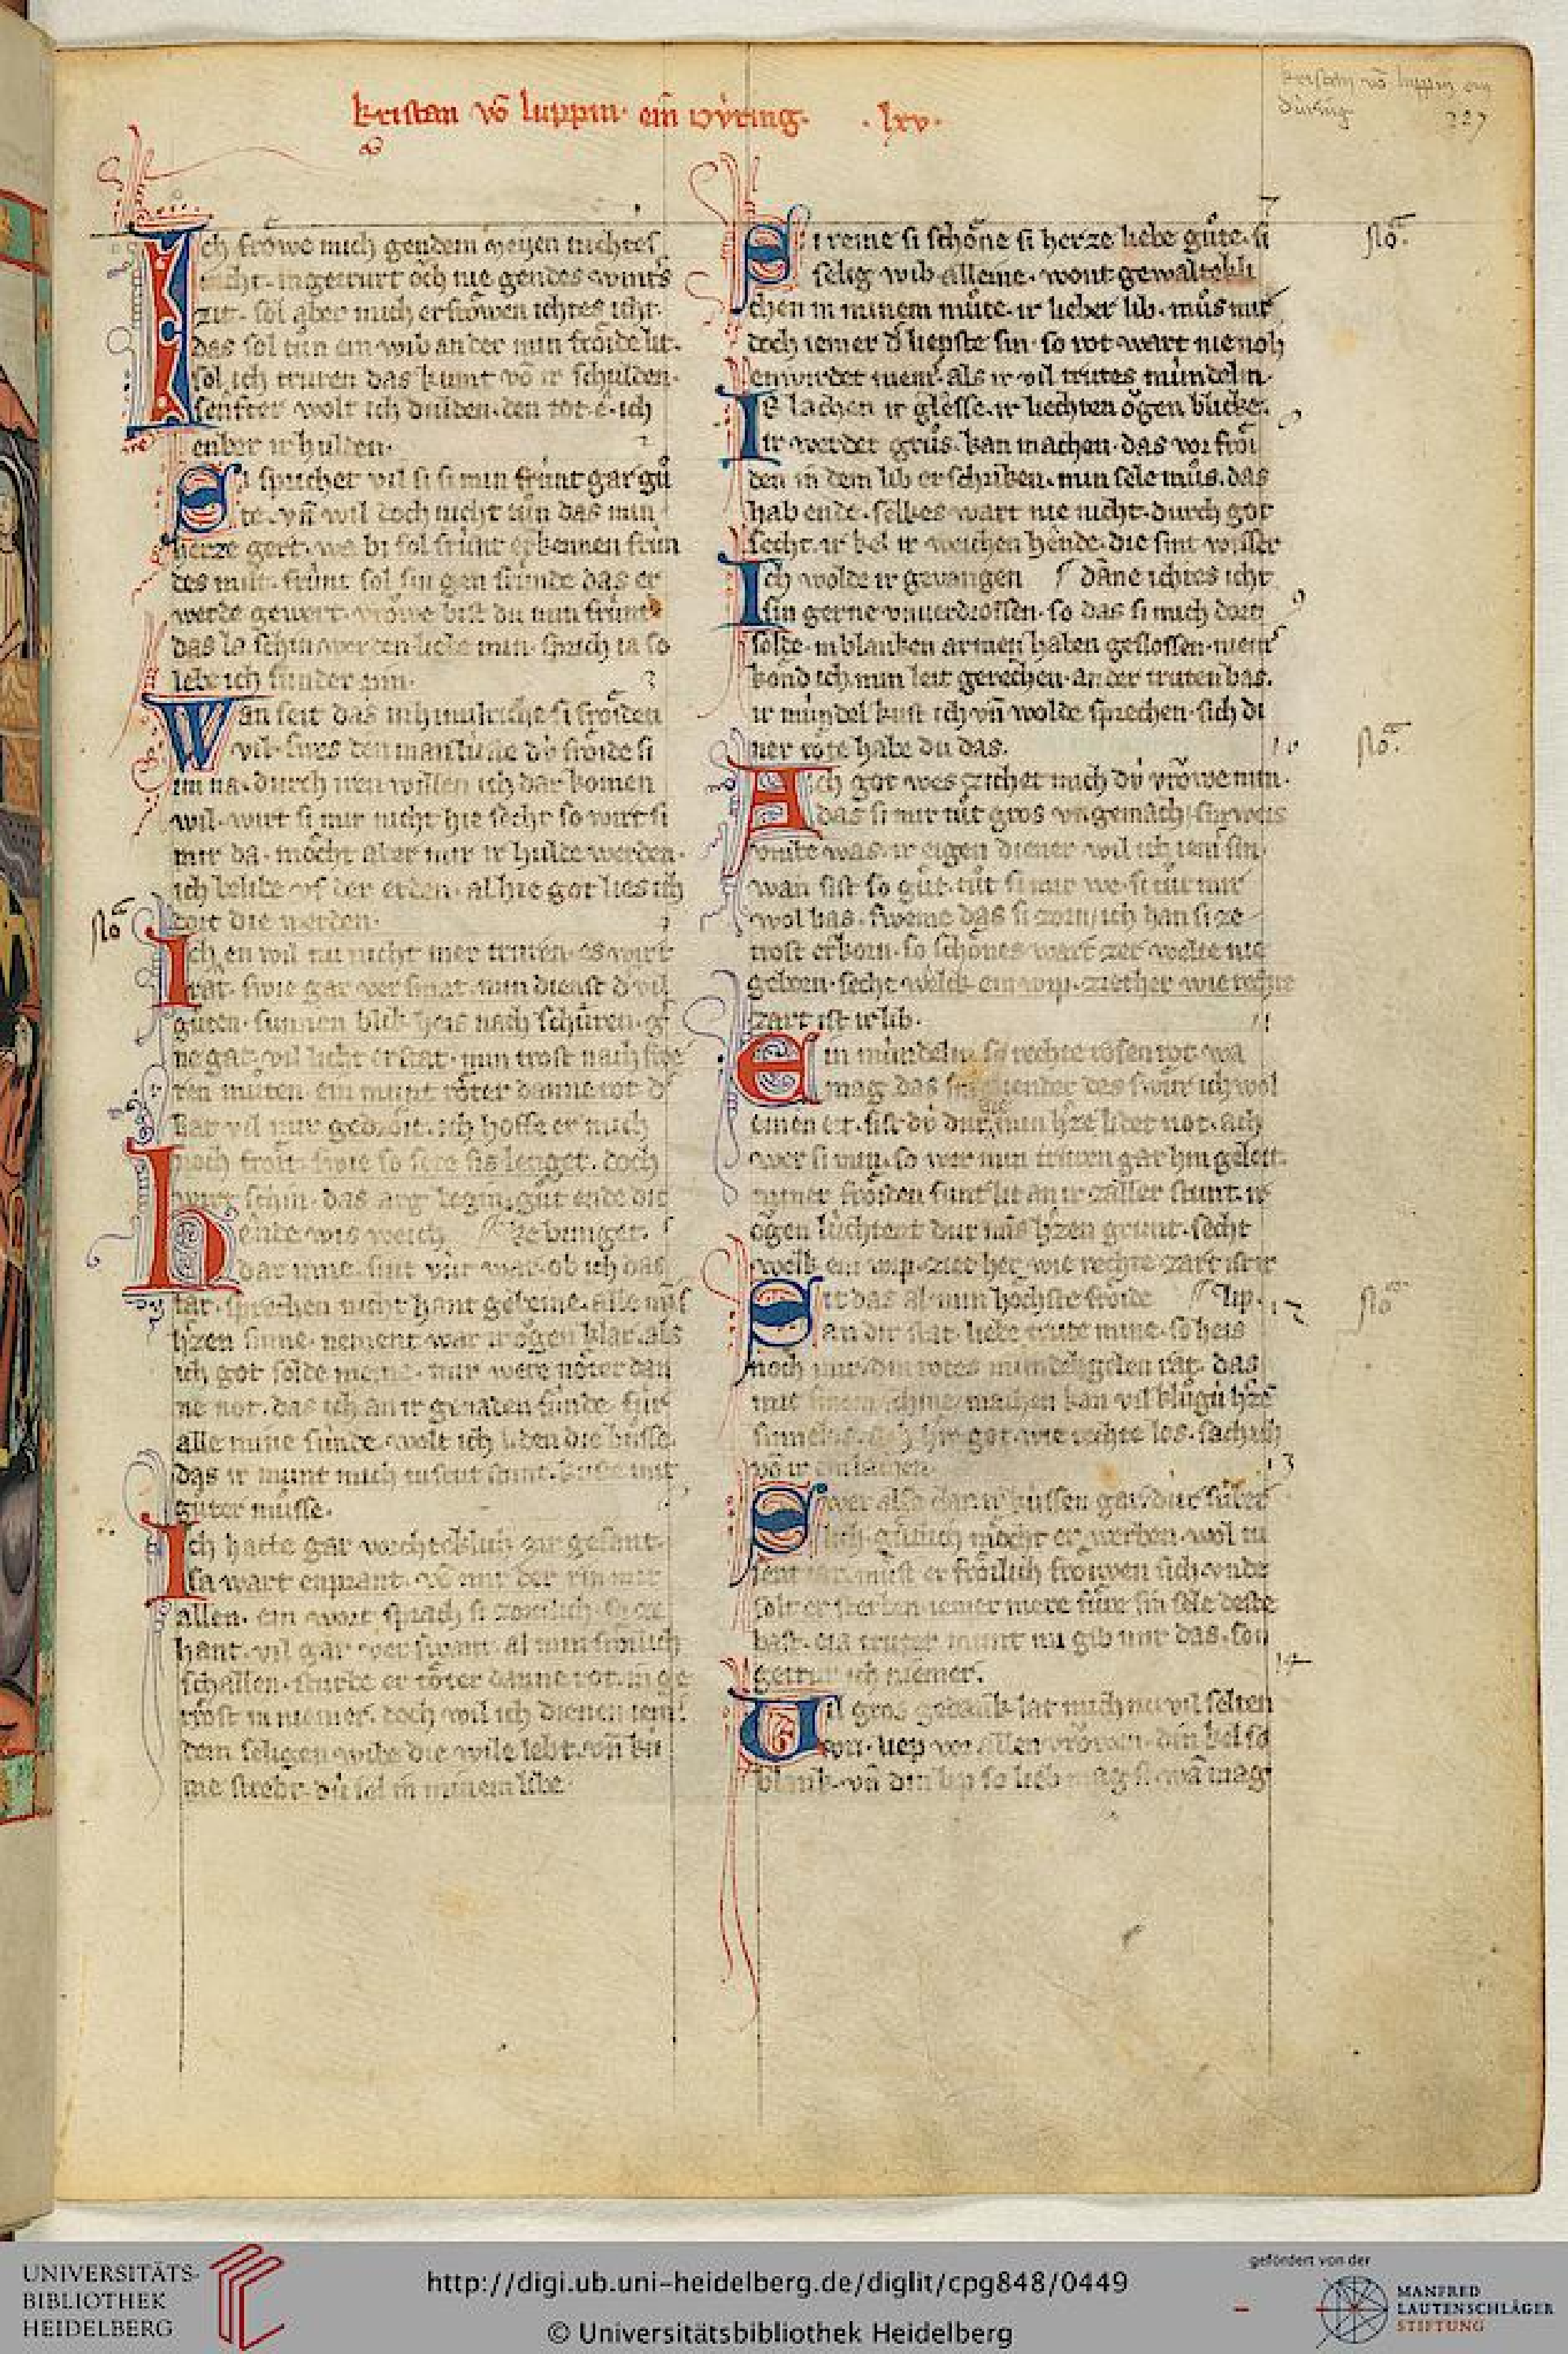 kristan vō luppin· ein dv́ring· · lxv·
kristan vō luppin ein
düring
227
Ich frŏwe mich gendem meyen nichtes
nicht· ingetrurt och nie gendes wint's
zit· sol aber mich erfrŏwen ichtes icht·
das sol tůn ein wib an der min frŏide lit·
sol ich truren das kumt vō ir schulden·
senfter wolt ich dulden· den tot· e· ich
enber ir hulden·
2
Si sprichet vil si si min frúnt gar gů
te· vn̄ wil doch nicht tůn das min
herze gert· wa bi sol frúnt erkennen frún
des můt· frúnt sol sin gen frúnde das er
werde gewert· vrŏwe bist du min frúnt
das la schin werden liebe min· sprich ia so
lebe ich sunder pin·
3
Wan seit das in himilriche si frŏiden
vil· swes den man luste dú frŏide si
im na· durch iren willen ich dar komen
wil· wirt si mir nicht hie secht so wirt si
mir da· mŏcht aber mir ir hulde werden·
ich belibe vf der erden· alhie got lies ich
dort die werden·
Ich en wil nu nicht mer truren· es wirt
rat· swie gar versmat· min dienst d' vil
gůten· sunnen blik heis nach schúren· g'
ne gat· vil licht er stat· min trost nach swe
ren můten· ein munt rŏter danne rot· d'
hat vil mir gedrŏit· ich hoffe er mich
noch frŏit· swie so sere sis lenget· doch
wirt schin· das arg begin· gůt ende dic
hende wis weich
dar inne· sint
tar· sprechen nicht hant gebeine· alle mīs
h'zen sinne· nement war ir ŏgen klar· als
ich got solde meine· mir were nŏter dan
ne not· das ich an ir genaden fúnde· fúr
alle mine súnde· wolt ich liden die bůsse·
das ir munt mich tusent stunt· kuste mit
gůter můsse·
Ich hatte gar vorchteklich zir gesant·
sa wart enpfant· vō mir der rin mit
allen· ein wort sprach si zorneklich·
hant· vil gar verswant· al min frŏilich
schallen· sturbe er tŏter danne tot·
trŏst in niemer· doch wil ich dienen iem'
dem seligen wibe die wile lebt· vn̄
me strebt· dú sel in minem libe·
7
Si reine si schŏne si herze liebe gůte· si
selig wib alleine· wont gewalteklī
chen in minem můte· ir lieber lib· můs mir
doch iemer d' liepste sin· so rot wart nie noh
enwirdet niem'· als ir vil trutes múndelin·
Ir lachen ir glesse· ir liechten ŏgen blicke·
ir werder grůs· kan machen· das vor frŏi
den in dem lib erschriken· min sele můs· das
hab ende· selkes wart nie nicht· durch got
secht· ir kel ir weichen hende· die sint wisser
Ich wolde ir gevangen danne ichtes icht
sin gerne vnuerdrossen· so das si mich dorn
solte· in blanken armen haben geslossen· niem'
kond ich min leit gerechen· an der truten bas·
ir múndel kust ich vn̄ wolde sprechen· sich di
ner rŏte habe du das·
10
Ach got wes zichet mich dú vrŏwe min·
das si mir tůt gros vngemach· sin weis
vmbe was· ir eigen diener wil ich iem' sin·
wan sist so gůt· tůt si mir we· si tůt mir
wol bas· swenne das si zorn· ich han si ze
trost erkorn· so schŏnes wart zer welte nie
geborn· secht welch ein wip· ziet her wie rechte
zart ist ir lib·
11
Ein múndelin si rechte rosen rot· wa
mag das sin· iender des swúr ich wol
einen eit· sist dú dur die min h'ze lidet not· ach
wer si min· so wer min truren gar hin geleit·
miner frŏiden funt lit an ir zaller stunt· ir
ŏgen lúchtent dur mīs h'zen grunt· secht
welk ein wip· ziet her· wie rechte zart ist ir
lip·
12
Sit das al min hŏchste frŏide
an dir stat· liebe trute mine· so heis
noch mir din rotes múndeli geben rat· das
mit sinem schine· machen kan vil blůgú h'ze
sinnelos· ach h're got· wie rechte los· sach ich
vō ir ein lachen·
13
Swer also dar ir kússen gar· dur súber
lich· gútlich mŏcht er werben· wol tu
sent iar· můst er frŏilich frouwen sich· vnde
solt er sterben· iemer mere fůre sin sele deste
bas· eia truter munt nu gib mir das· son
getrur ich niemer·
14
Vil gros gedank lat mich nu vil selten
vri· liep vor allen vrŏwen· din kel so
blank· vn̄ din lip so lieb mag si· wā mag
nō
nō
nō
nō
UNIVERSITÄTS-
BIBLIOTHEK
HEIDELBERG
http://digi.ub.uni-heidelberg.de/diglit/cpg848/0449
© Universitätsbibliothek Heidelberg
gefördert von der
MANFRED
LAUTENSCHLÄGER
STIFTUNG